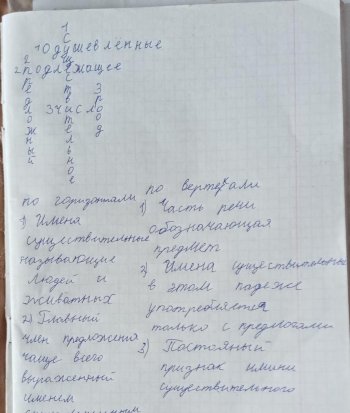 1
С
1 Одушевлённые
2 щ
2 Подлежащее
р с
е т 3
д в р
л 3 число
о т д
ж е
н л
ы ь
й н
о
е
по горизонтали
1) Имена
существительные
называющие
людей и
животных
2) Главный
член предложения
чаще всего
выраженный
именем
по вертекали
1) Часть речи
обозначающая
предмет
2) Имена существительные
в этом падеже
употребляется
только с предлогами
3) Постояный
признак имини
существительного